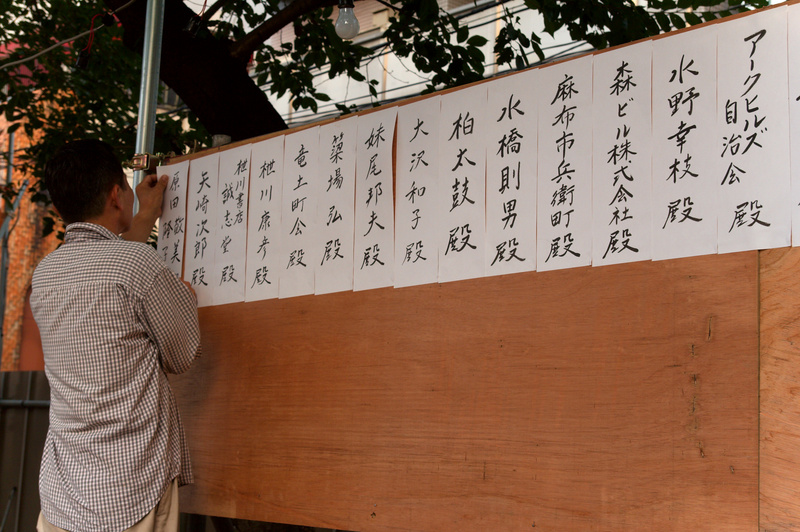 アークヒルズ
自治会 殿
水野幸枝 殿
森ビル株式会社 殿
麻布市兵衛町 殿
水橋則男 殿
柏太鼓 殿
大沢和子 殿
妹尾邦夫 殿
築場弘 殿
竜土町会 殿
椎川康彦 殿
椎川書店
誠志堂 殿
矢崎次郎 殿
原田敬美